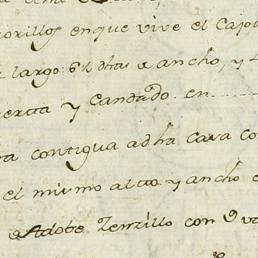 orillos en que vive el Capo
largo: 6 1/2 dhas. x ancho, y
uerta y candado en
ra contigua a dha casa co
el mismo alto y ancho e
Adobe senzillo con